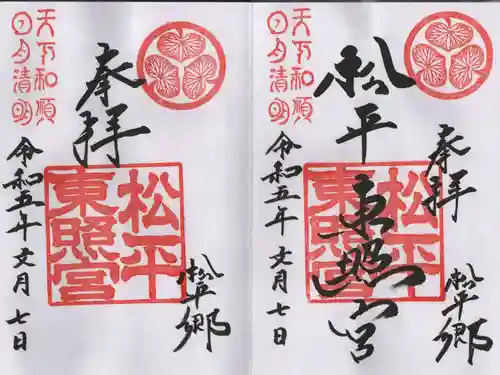 奉拝
松平郷
松平
東照宮
天下和順
日月清明
令和五年文月七日
奉拝
松平郷
松平東照宮
松平
東照宮
天下和順
日月清明
令和五年文月七日